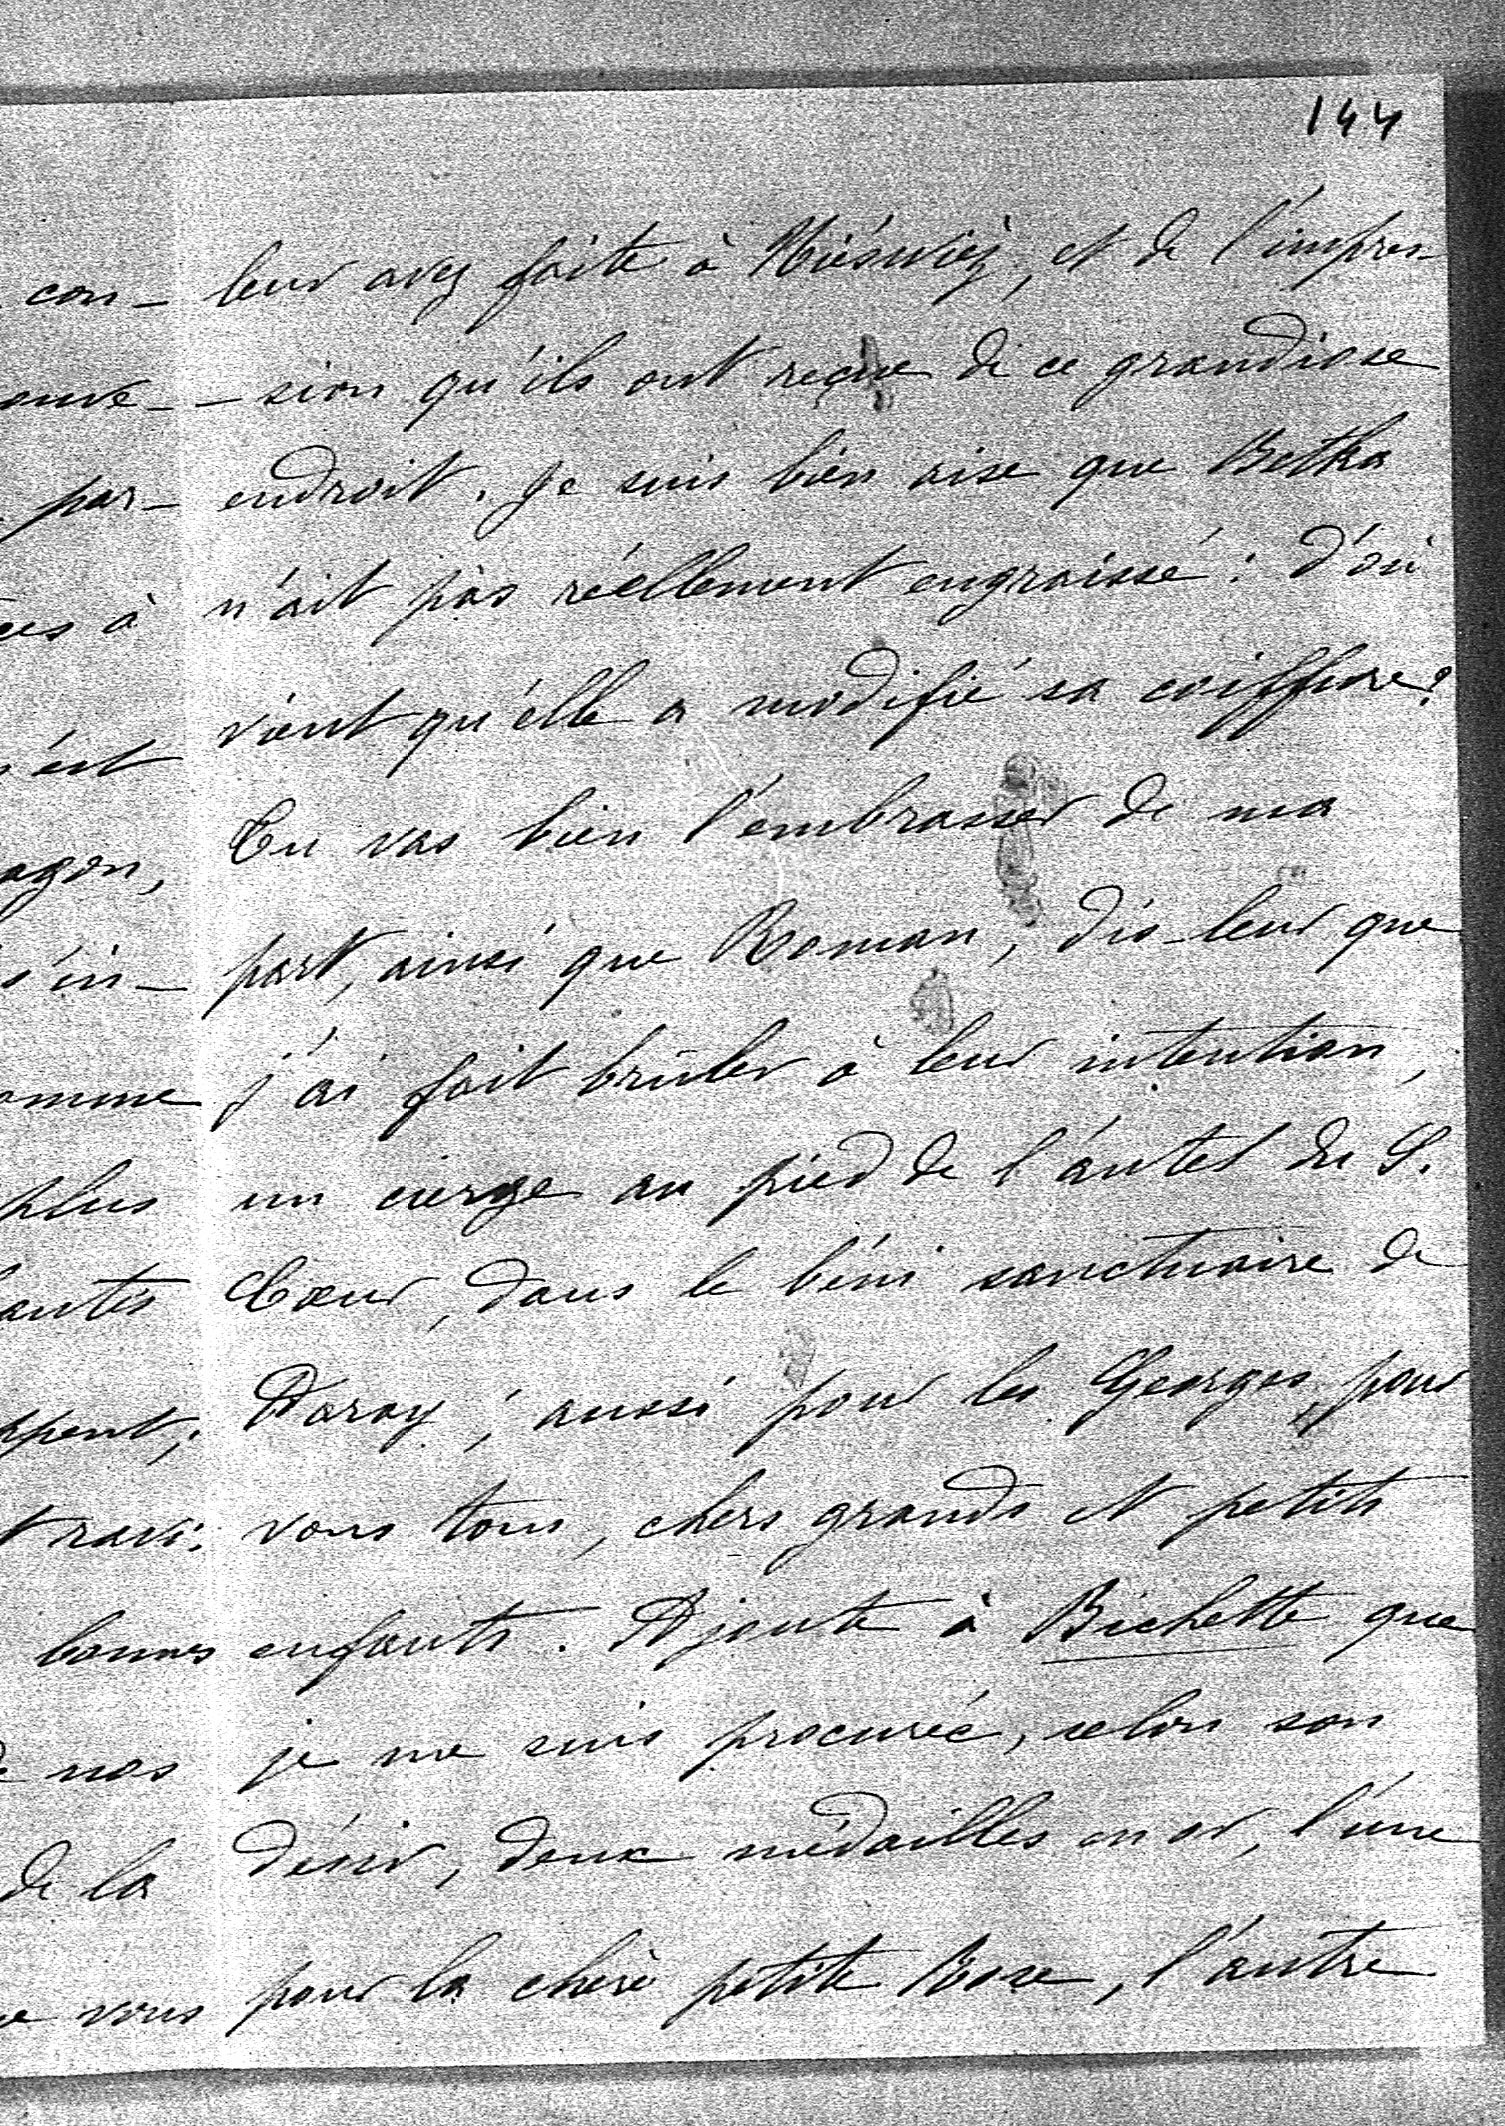 144
leur avez faite à Nieświéz, et de l'impres-
- sion qu'ils ont reçue de ce grandiose
endroit. Je suis bien aise que Betka
n'ait pas réellement engraissé: d'où
vient qu'elle a modifié sa coiffure?
Tu vas bien l'embrasser de ma
part, ainsi que Roman, dis-leur que
j'ai fait brûler à leur intention,
un cierge au pied de l'autel du S.
Cœur, dans le béni sanctuaire de
Paray; aussi pour les Georges, pour
vous tous, chers grands et petits
enfants. Ajoute à Bichette que
je me suis procurée, selon son
désir, deux médailles en or, l'une
pour la chère petite Rose, l'autre
con-
ouve-
par-
ces à
n'est
agon,
s'in-
omme
plus
antes
ppent;
t ravi:
bonnes
nos
de la
vous